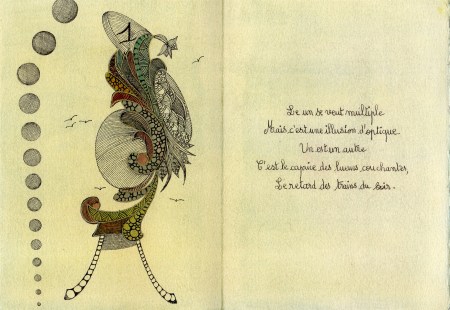 1
Le un se veut multiple
Mais c'est une illusion d'optique.
Un est un autre
C'est le caprice des lueurs couchantes,
Le retard des trains du soir.